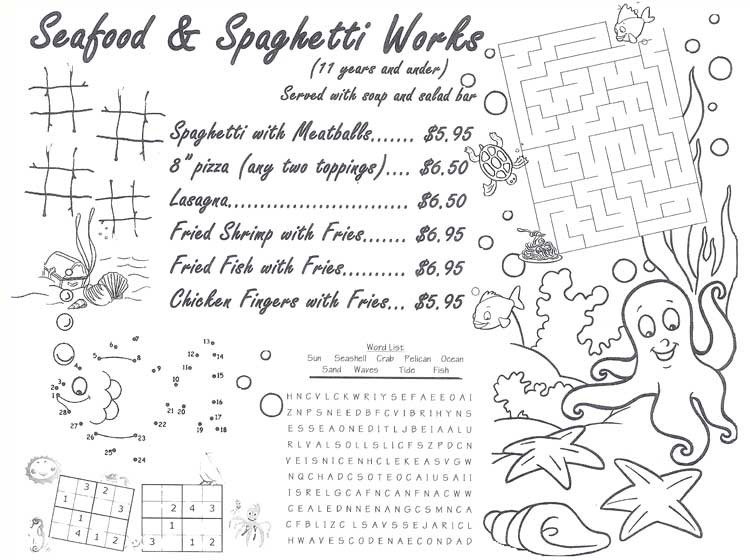 Seafood & Spaghetti Works
(11 years and under)
Served with soup and salad bar
Spaghetti with Meatballs....... $5.95
8" pizza (any two toppings).... $6.50
Lasagna............................... $6.50
Fried Shrimp with Fries....... $6.95
Fried Fish with Fries.......... $6.95
Chicken Fingers with Fries... $5.95
Word List
Sun Seashell Crab Pelican Ocean
Sand Waves Tide Fish
H N C V L C K W R I Y S E F A E E O A I
Z N P S N E E D B F C V I B R I H Y N S
E S S E A O N E D I T L J B E I A A L U
R L V A L S O L L S L I C F S Z P D C N
V E I S N I C E N H C L E K E A S V G W
N Q C H A D C S O T E O C A I U S A I I
I S R E L G C A F N C A N F N A C W W
C E A L E D N N E N A N G C S M N C A
C F B L I Z C L S A V S S E J A R I C L
H W A V E S C O D E N A E C O N D A D
1 2 3 4 5 6 7 8 9 10 11 12 13 14 15 16 17 18 19 20 21 22 23 24 25 26 27 28
3 2
1
1 3
4 1 2
2 4 3
1
3 1 2